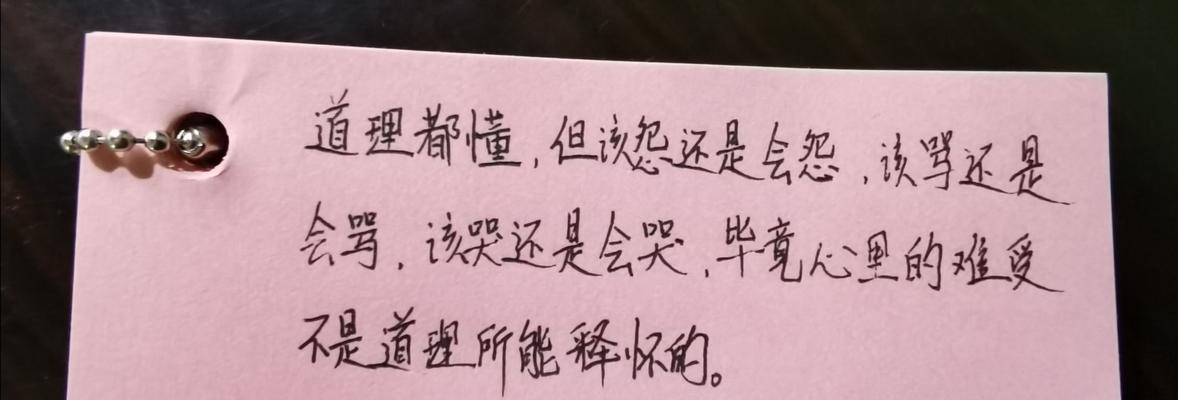 道理都懂，但该怨还是会怨，该骂还是
会骂，该哭还是会哭，毕竟心里的难受
不是道理所能释怀的。